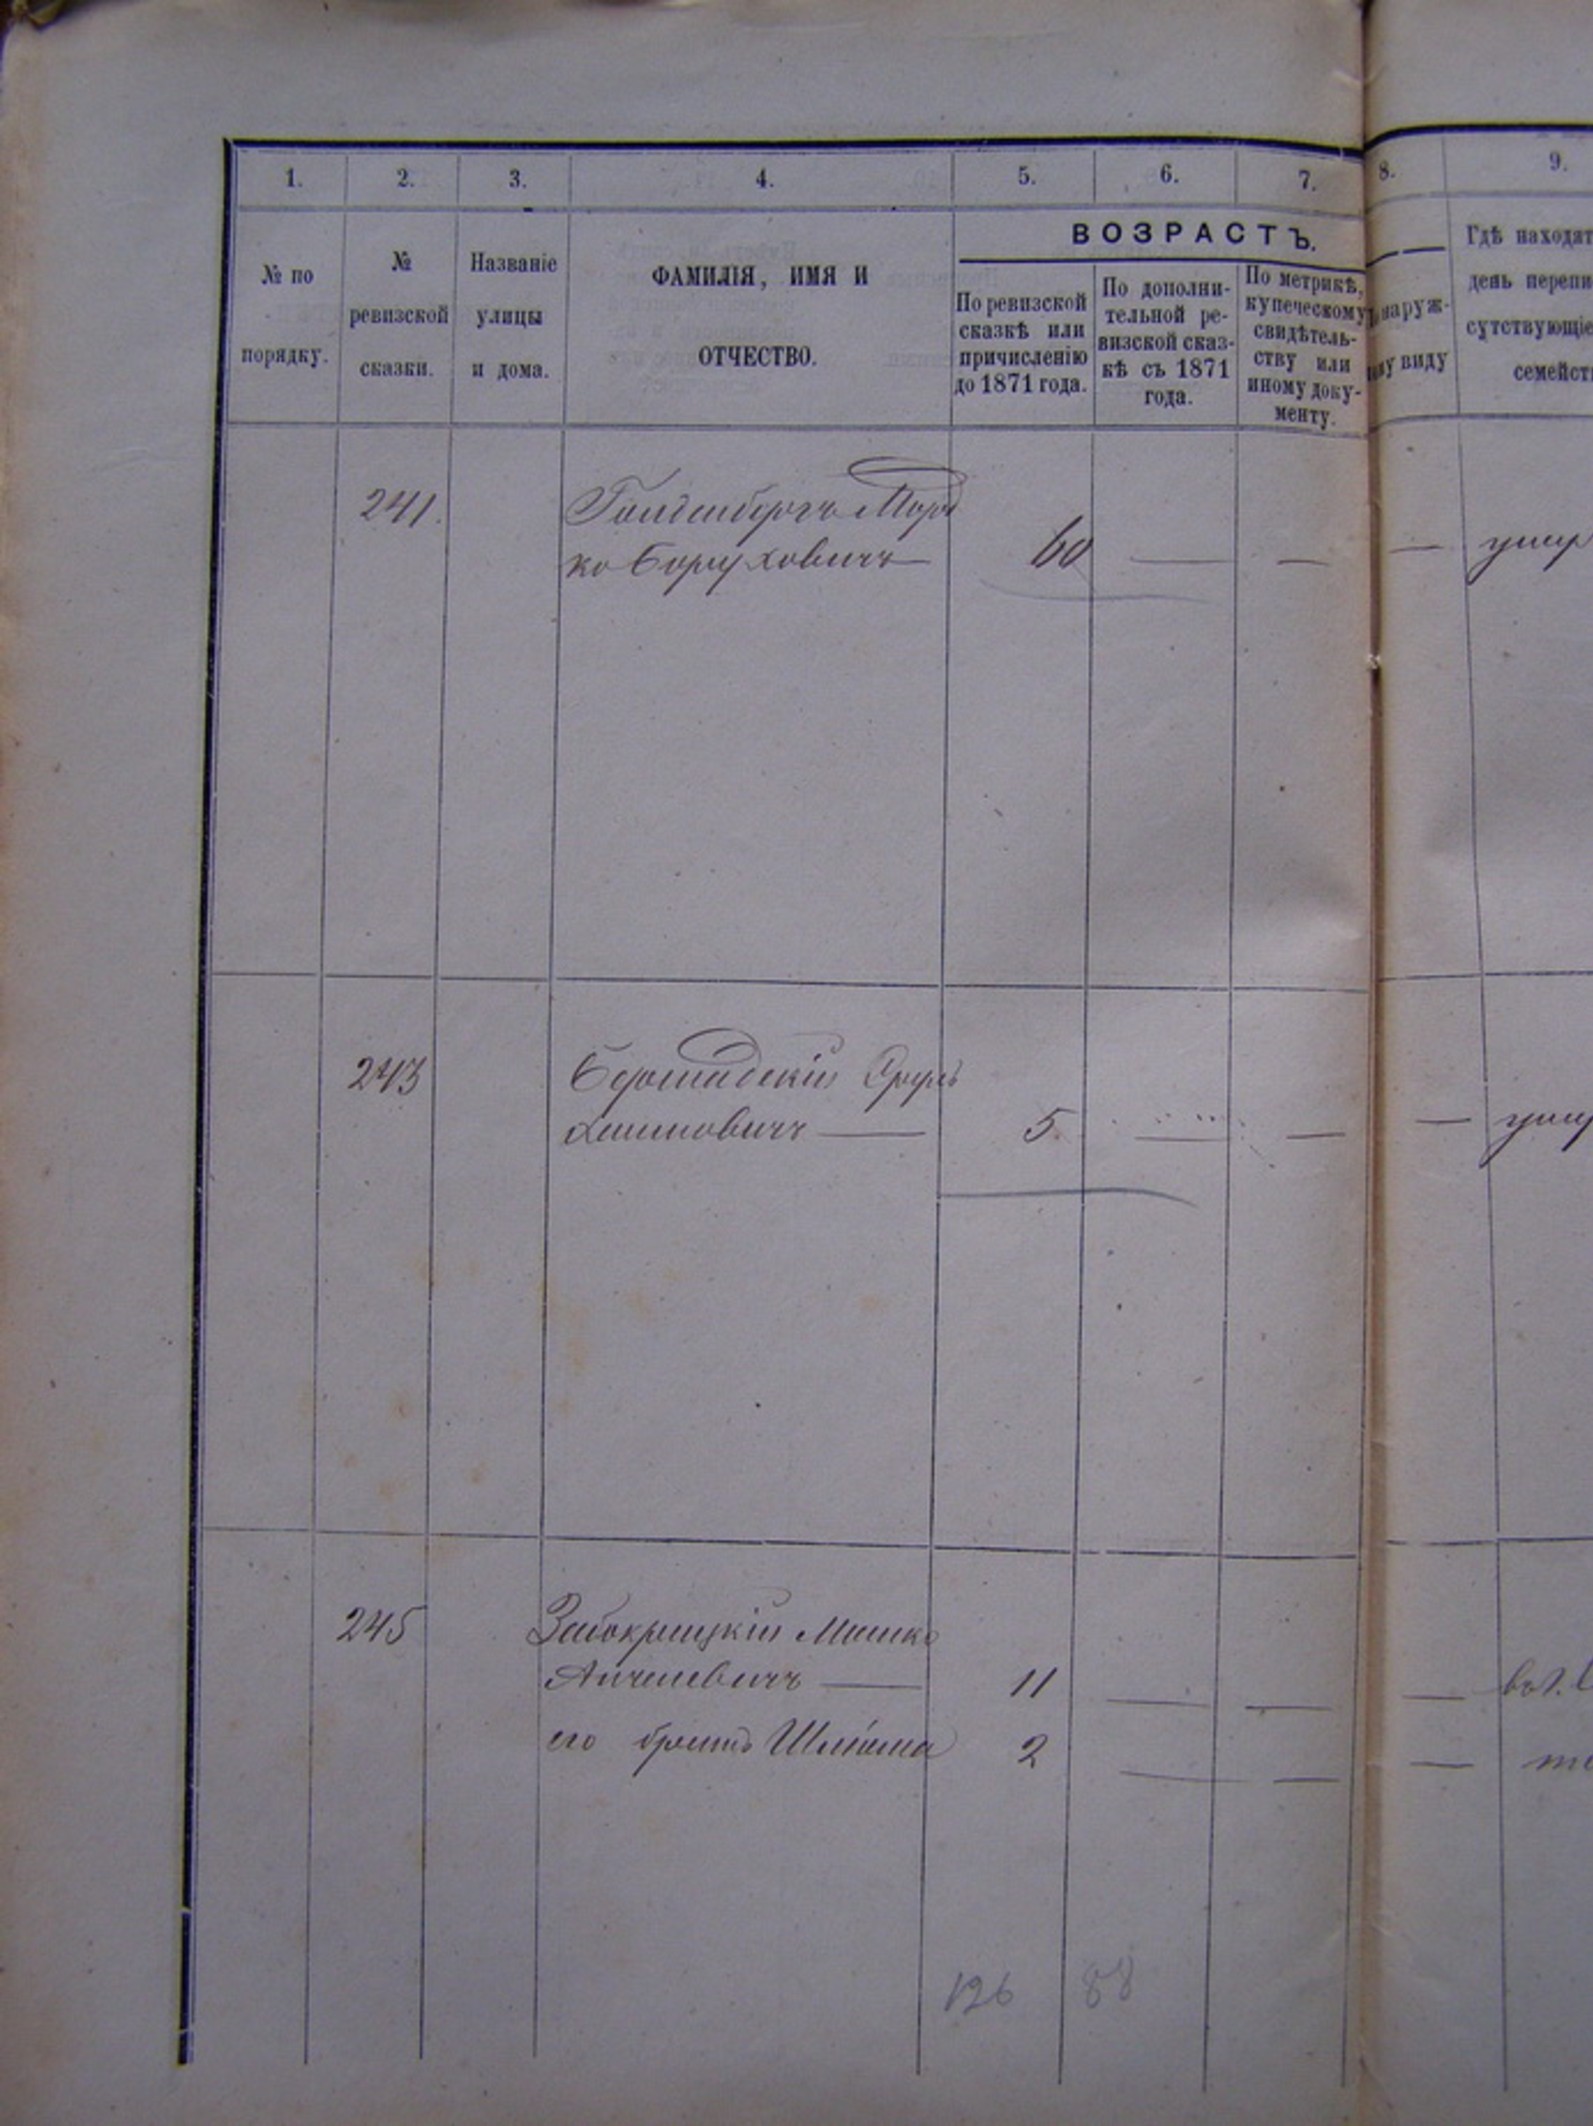 1. 2. 3. 4. 5. 6. 7. 8. 9.
ВОЗРАСТЪ.
№ по
порядку.
№
ревизской
сказки.
Названіе
улицы
и дома.
ФАМИЛІЯ, ИМЯ И
ОТЧЕСТВО.
По ревизской
сказкѣ или
причисленію
до 1871 года.
По дополни-
тельной ре-
визской сказ-
кѣ съ 1871
года.
По метрикѣ,
купеческому
свидѣтель-
ству или
иному доку-
менту.
наруж-
виду
Гдѣ находят
день перепи
сутствующіе
семейст
241. Гольденбергъ Морд
ко Боруховичъ — 60 — — — умер
243 Бершадскій Сруль
Хаимовичъ — 5 — — — умер
245 Забокрицкій Мошко
Анчелевичъ — 11 — — —
его братъ Шлёма 2 — — —
126 88